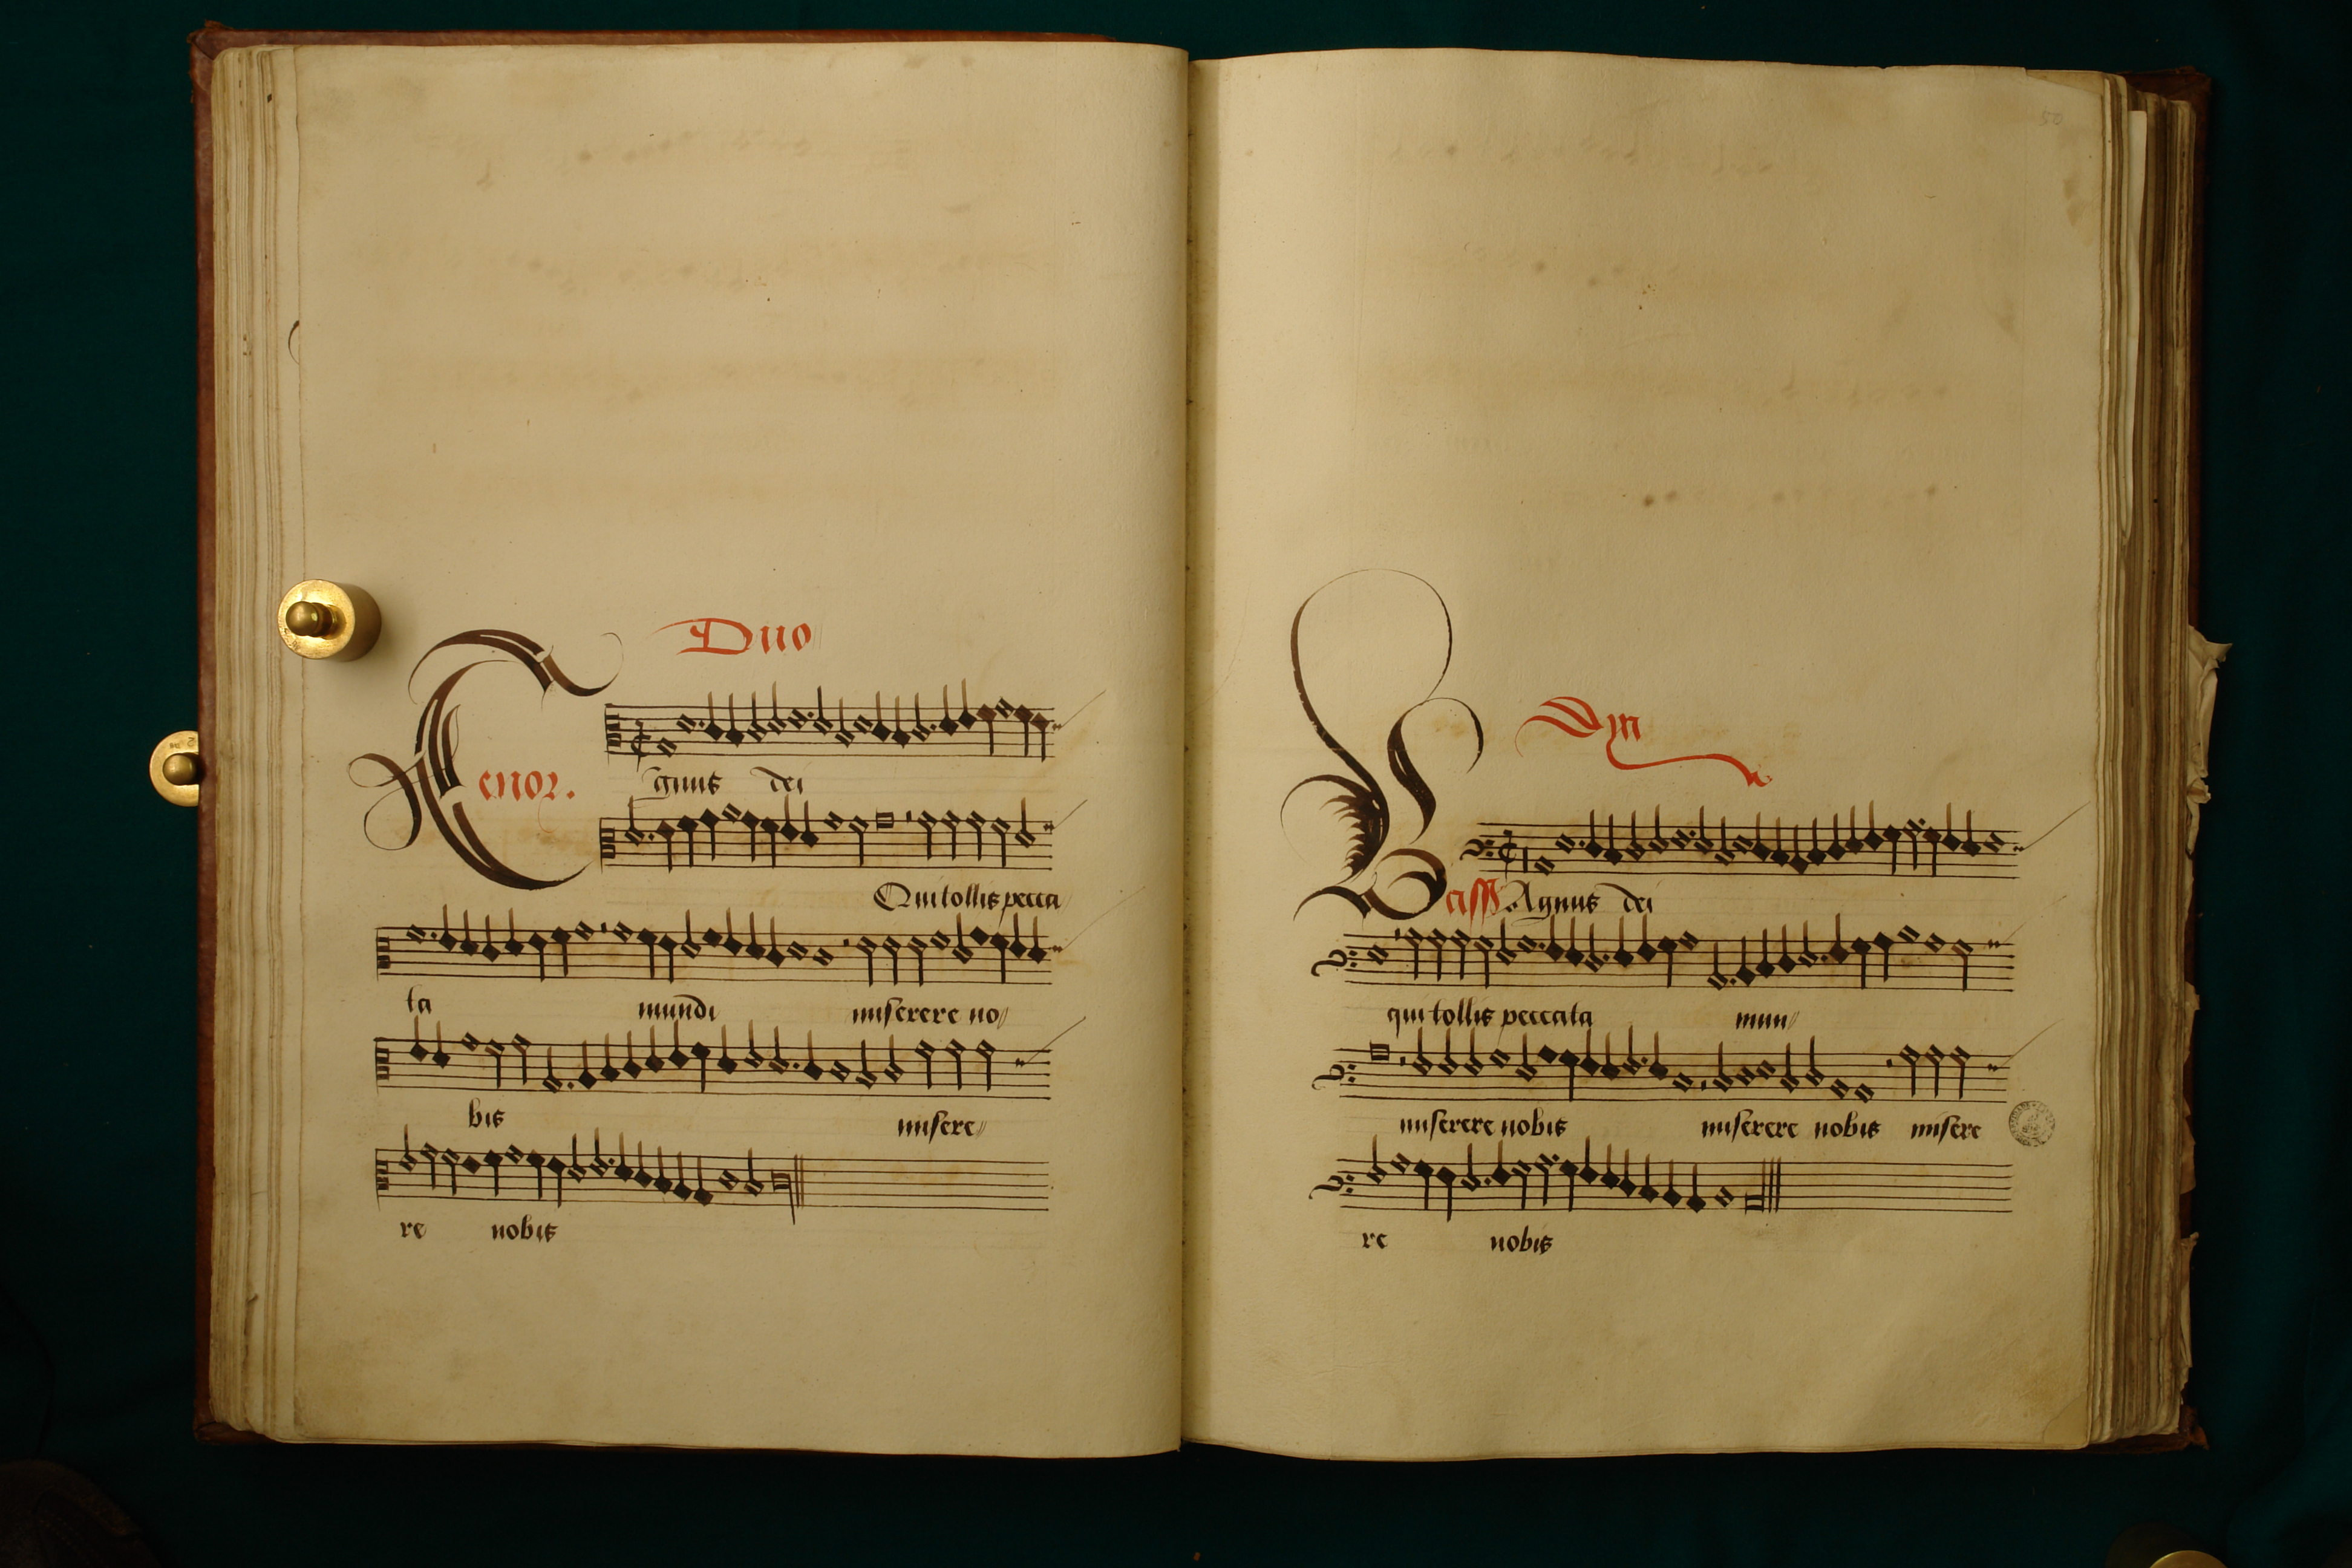 Duo
Tenor.
gnus dei
Qui tollis pecca
ta mundi miserere no
bis misere
re nobis
50
Bass Agnus dei
qui tollis peccata mun
miserere nobis miserere nobis misere
re nobis